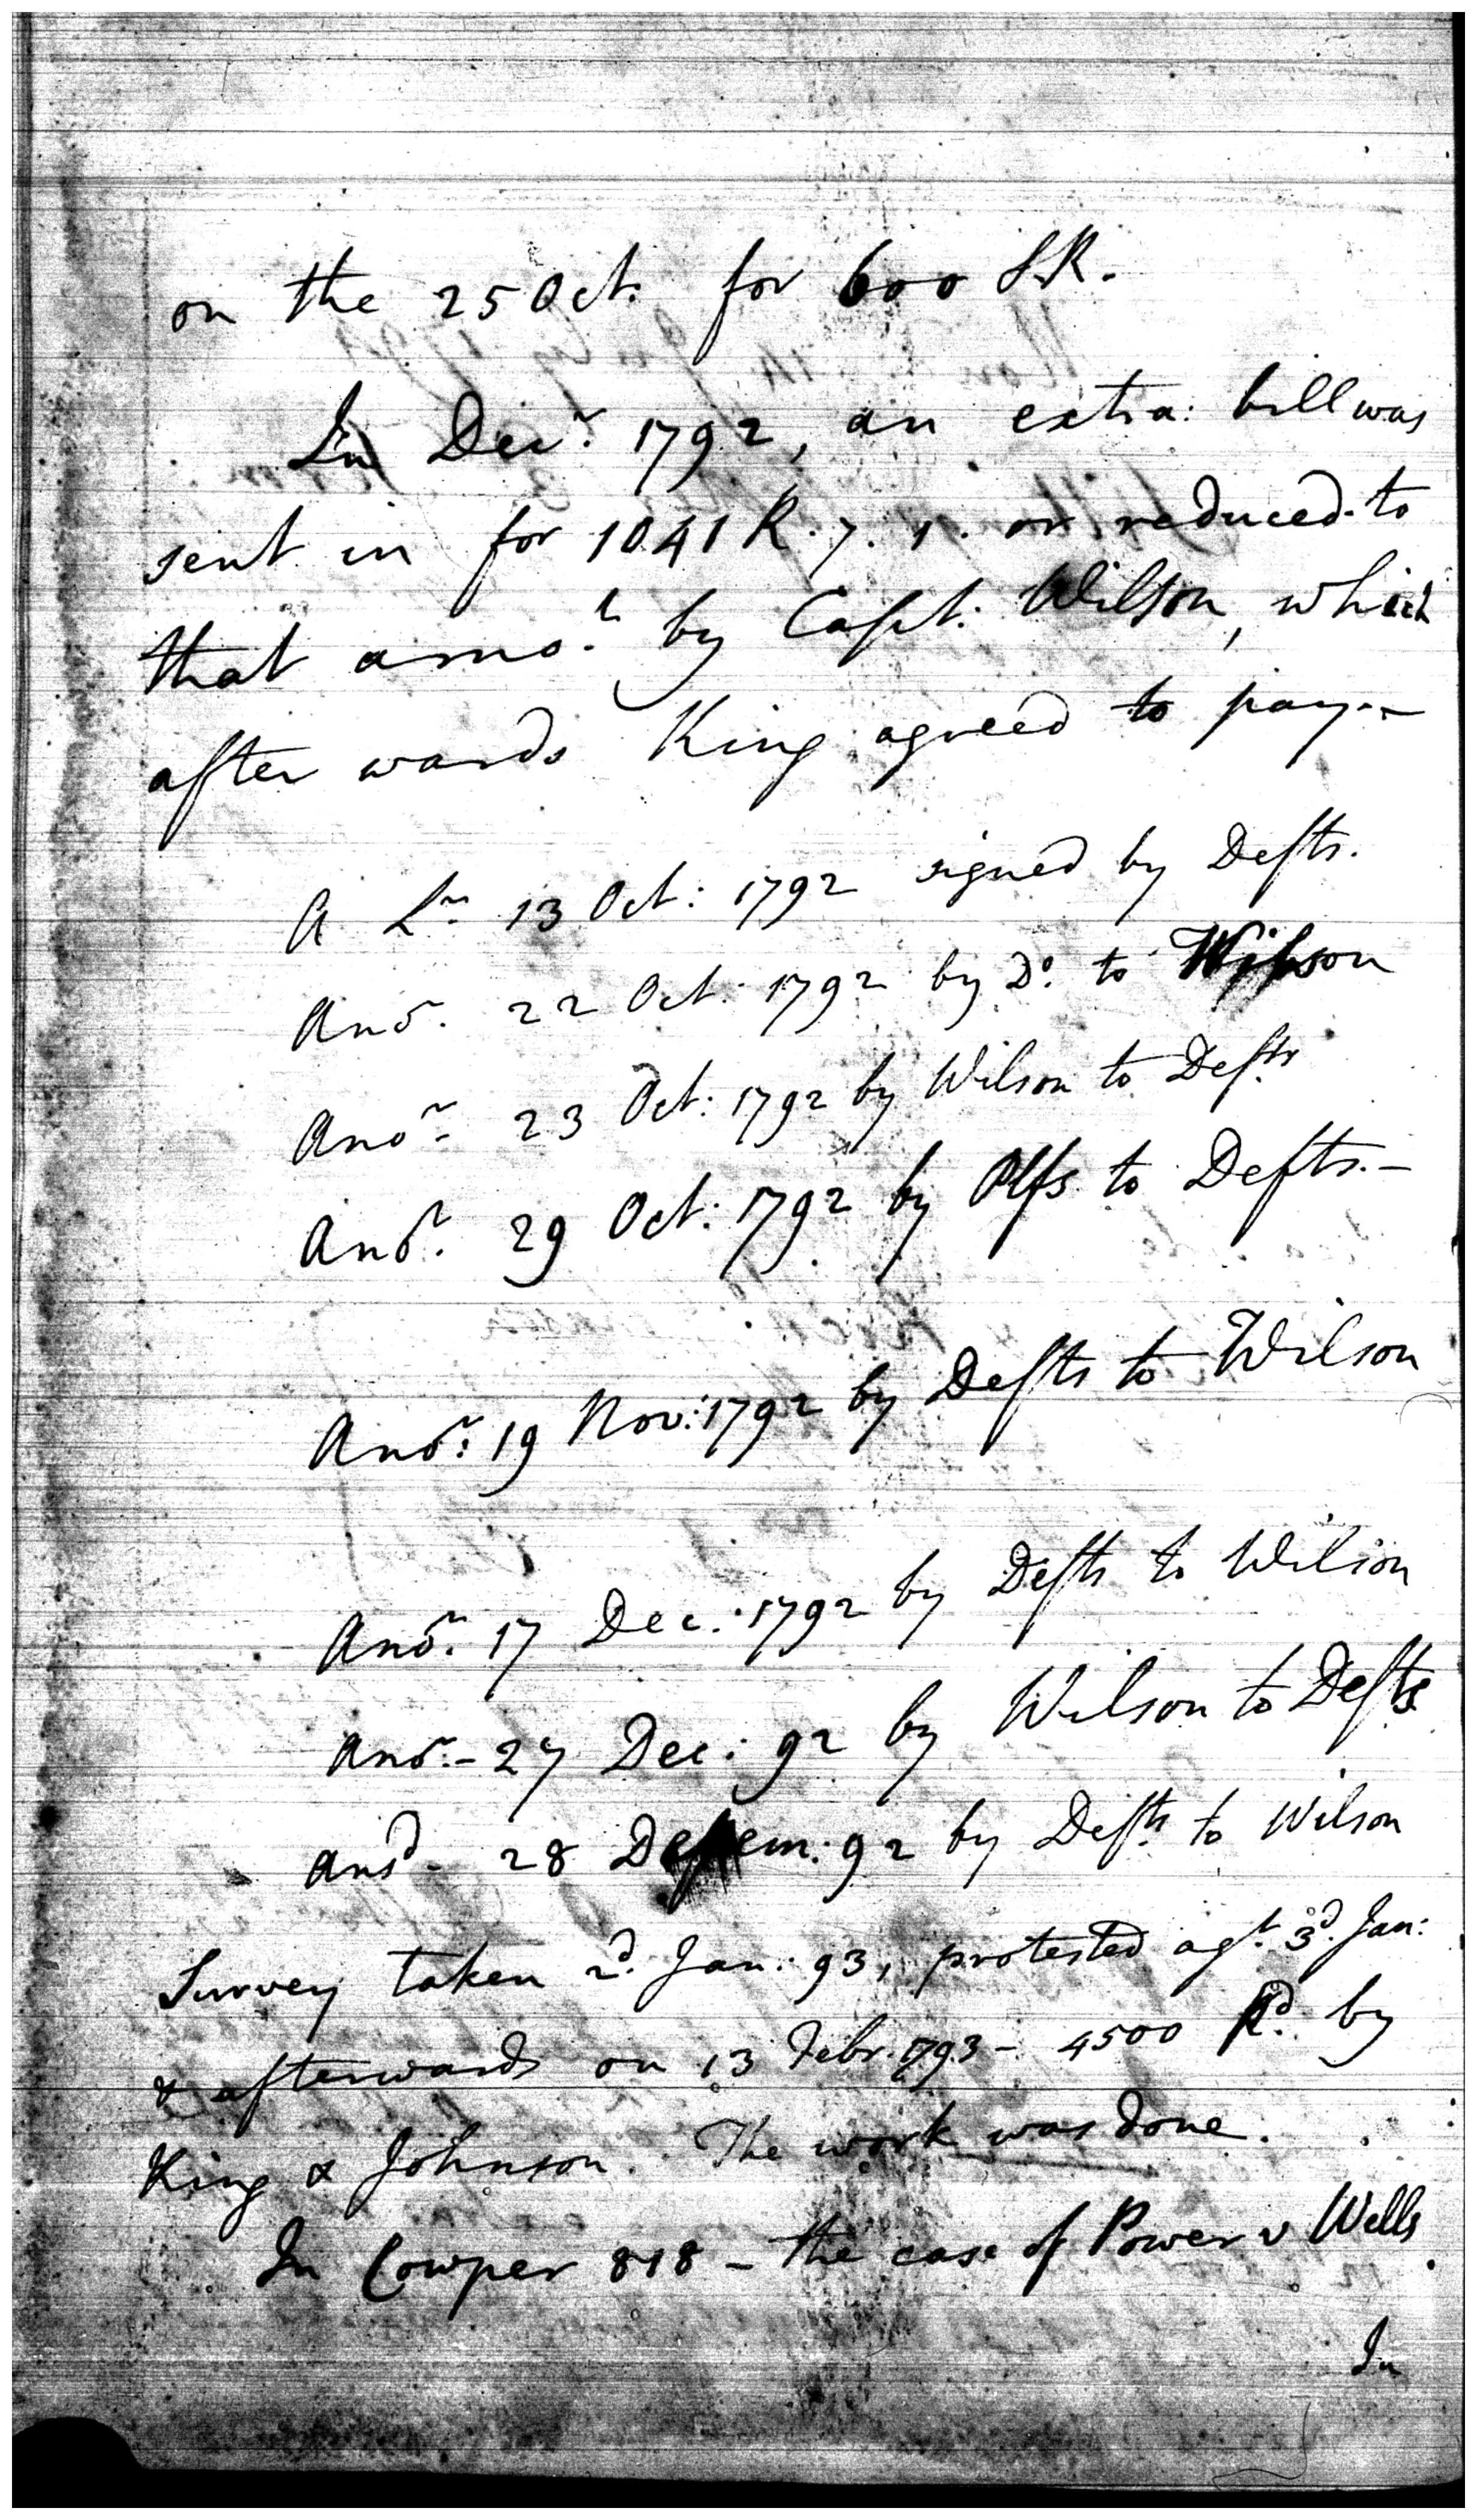 on the 25 Oct. for 600 S.R.
In Decr. 1792, an extra: bill was
sent in for 1041 R. 7. 1. or reduced to
that amot. by Capt. Wilson, which
after wards King agreed to pay.-
A Lr. 13 Oct: 1792 signed by Defts.
Anor. 22 Oct: 1792 by Do. to Wilson
Anor. 23 Oct: 1792 by Wilson to Defts
Anor. 29 Oct: 1792 by Plfs to Defts.-
Anor: 19 Nov: 1792 by Defts to Wilson
Anor. 17 Dec: 1792 by Defts to Wilson
Anor.- 27 Dec: 92 by Wilson to Defts
Ansd- 28 Decem: 92 by Defts to Wilson
Survey taken 2d. Jan: 93, protested agt. 3d. Jan:
& afterwards on 13 Febr. 1793 - 4500 Rd. by
King & Johnson. The work was done.
In Cowper 818 - the case of Power v Wells.
In